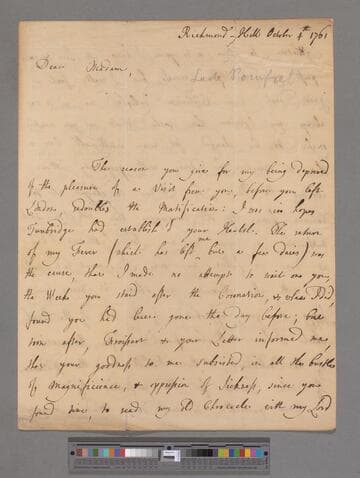 Richmond-Hill October 4th 1761
Dear Madam,
Lady Pomfret
The reason you give for my being deprived
of the pleasure of a Visit from you, before you left
London, redoubles the Mortification: I was in hopes
Tunbridge had establish'd your Health. The return
of my Fever (which has left me but a few days) was
the cause, that I made no attempts to wait on you,
the Week you staid after the Coronation, & when I did,
found you had been gone the day before; but
soon after, & your Letter informed me
that your goodness to me subsisted, in all the bustles
of Magnificence, & oppression of Sickness, since you
found time, to read my Old Chronicles with my Lord